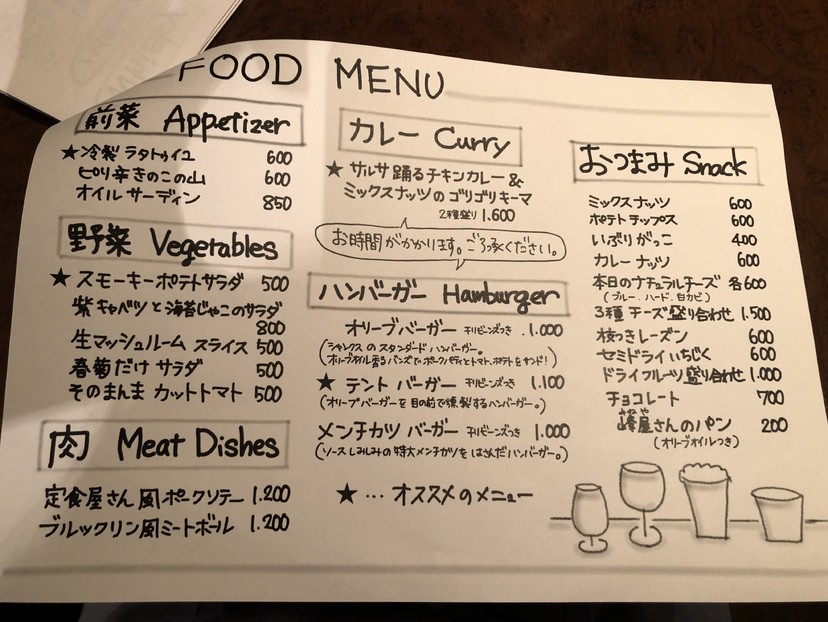 FOOD MENU
前菜 Appetizer
★冷製ラタトゥイユ 600
ピリ辛きのこの山 600
オイルサーディン 850
野菜 Vegetables
★スモーキーポテトサラダ 500
紫キャベツと海苔じゃこのサラダ
800
生マッシュルームスライス 500
春菊だけサラダ 500
そのまんまカットトマト 500
肉 Meat Dishes
定食屋さん風ポークソテー 1.200
ブルックリン風ミートボール 1.200
カレー Curry
★サルサ踊るチキンカレー&
ミックスナッツのゴリゴリキーマ
2種盛り 1.600
お時間がかかります。ご了承ください。
ハンバーガー Hamburger
オリーブバーガー チリビーンズつき 1.000
(シャンクスのスタンダードハンバーガー。
オリーブオイル香るバンズでポークパティとトマト、ポテトをサンド!)
★テントバーガー チリビーンズつき 1.100
(オリーブバーガーを目の前で燻製するハンバーガー。)
メンチカツバーガー チリビーンズつき 1.000
(ソースしみしみの特大メンチカツをはさんだハンバーガー。)
★…オススメのメニュー
おつまみ Snack
ミックスナッツ 600
ポテトチップス 600
いぶりがっこ 400
カレーナッツ 600
本日のナチュラルチーズ 各600
(ブルー、ハード、白カビ)
3種チーズ盛り合わせ 1.500
枝つきレーズン 600
セミドライいちじく 600
ドライフルーツ盛り合わせ 1.000
チョコレート 700
蔦屋さんのパン 200
(オリーブオイルつき)